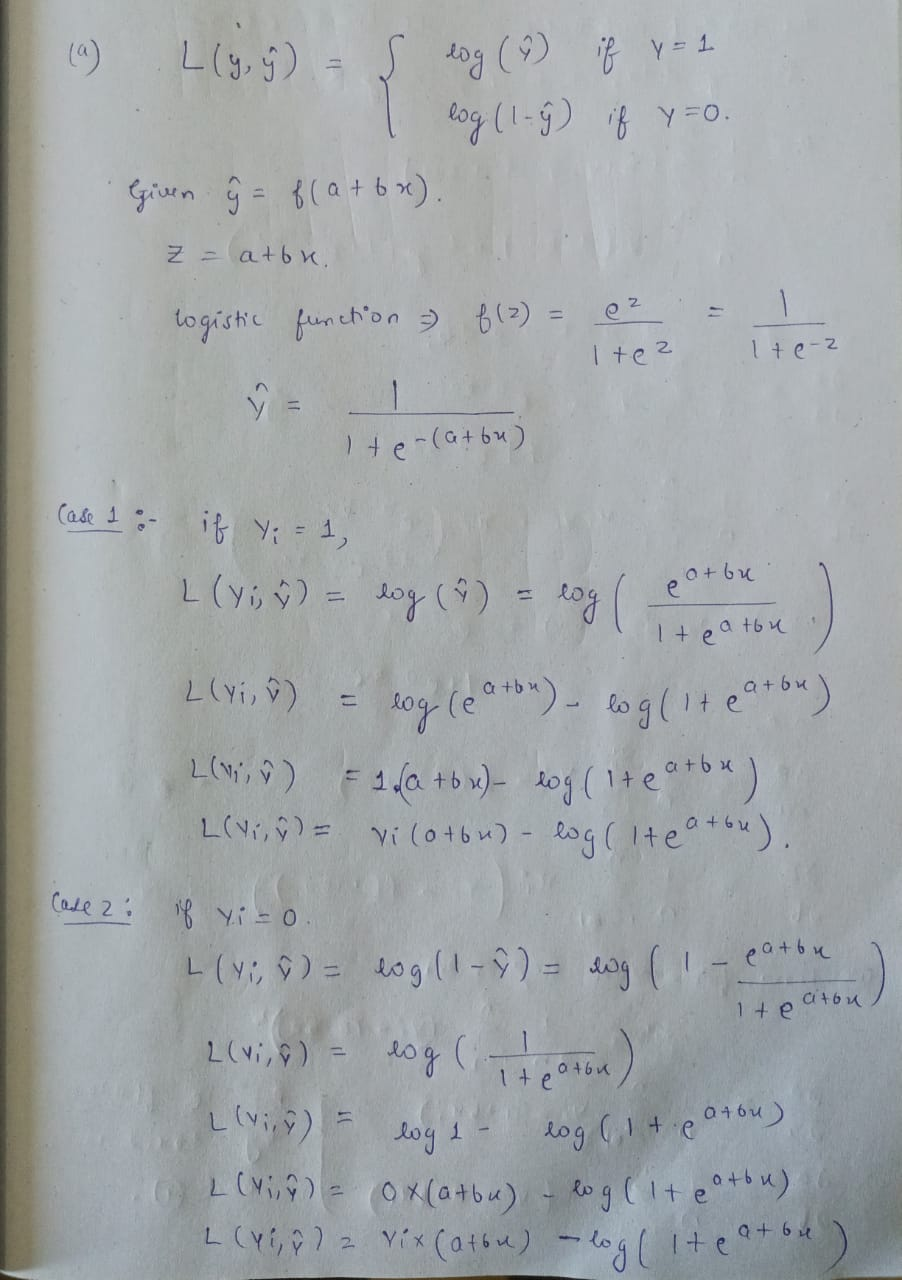 (a) L(y, ŷ) = { log (ŷ) if y = 1
log (1-ŷ) if y = 0.
Given ŷ = f(a + bx).
z = a+bx.
logistic function ⇒ f(z) = e^z / (1+e^z) = 1 / (1+e^-z)
ŷ = 1 / (1+e^-(a+bx))
Case 1 :- if yi = 1,
L(yi, ŷ) = log (ŷ) = log ( e^(a+bx) / (1+e^(a+bx)) )
L(yi, ŷ) = log (e^(a+bx)) - log(1+e^(a+bx))
L(yi, ŷ) = 1.(a+bx) - log(1+e^(a+bx))
L(yi, ŷ) = yi(a+bx) - log(1+e^(a+bx)).
Case 2 : if yi = 0.
L(yi, ŷ) = log(1-ŷ) = log ( 1 - e^(a+bx) / (1+e^(a+bx)) )
L(yi, ŷ) = log ( 1 / (1+e^(a+bx)) )
L(yi, ŷ) = log 1 - log (1+e^(a+bx))
L(yi, ŷ) = 0×(a+bx) - log(1+e^(a+bx))
L(yi, ŷ) = yi×(a+bx) - log(1+e^(a+bx))